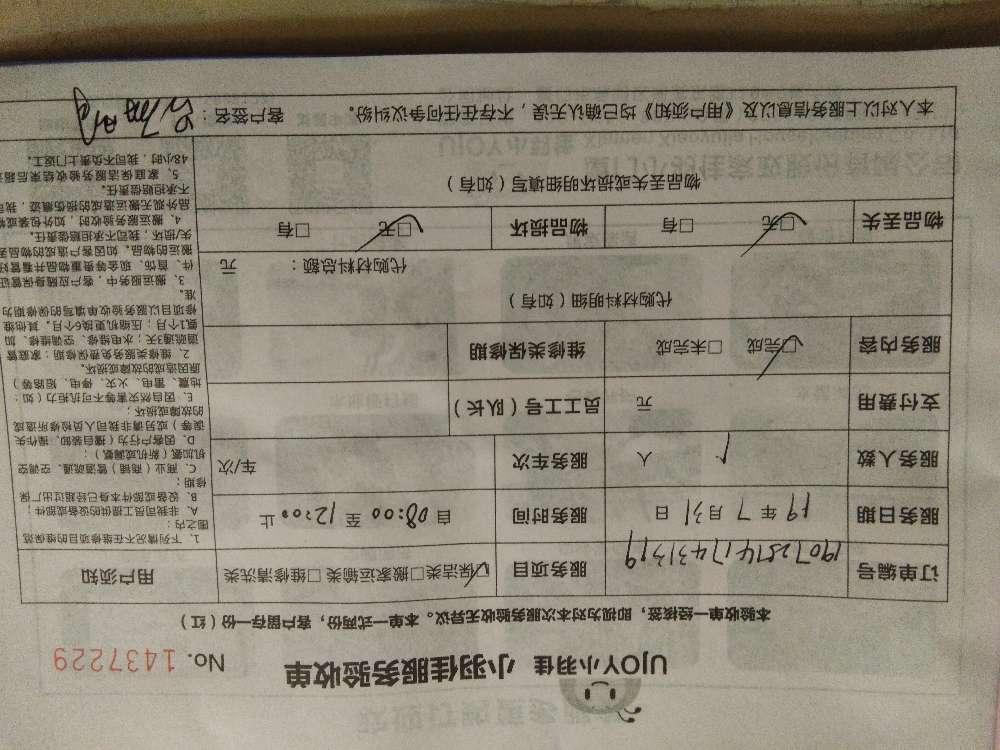 UJOY小羽佳 小羽佳服务验收单 No. 1437229
本验收单一经核签，即视为对本次服务验收无异议。本单一式两份，客户留存一份（红）
订单编号 190725141743131319 服务项目 ☑保洁类 □搬家运输类 □维修清洗类 用户须知
服务日期 19年7月31日 服务时间 自08:00至12:00止
服务人数 1人 服务车次 车/次
支付费用 元 员工工号（队长）
服务内容 ☑完成 □未完成 维修类保修期
代购材料明细（如有）
代购材料总额： 元
物品丢失 ☑无 □有 物品损坏 ☑无 □有
物品丢失或损坏明细填写（如有）
本人对以上服务信息以及《用户须知》均已确认无误，不存在任何争议纠纷。 客户签名：
1、下列情况不在维修项目的维保范
围之内：
A、非我司员工提供的设备或部件；
B、设备或部件本身已经超过出厂保
修期；
C、商业（商铺）管道疏通、空调空
机加氨（新机或漏氨）；
D、因客户行为（擅自装卸、操作失
误等）或另请非我司人员检修所造成
的故障或损坏；
E、因自然灾害等不可抗拒力（如：
地震、雷电、火灾、停电、短路等）
原因造成的故障或损坏。
2、维修类服务免费保修期：家庭管
道疏通3天；水电维修、空调维修、加
氨1个月；压缩机更换6个月。其他维
修项目以服务验收单填写的保修期为
准。
3、搬运服务中，客户应随身保管证
件、首饰、现金等贵重物品并看管好
搬运的物品。如因客户造成的物品丢
失/损坏，我司不承担赔偿责任。
4、搬运服务验收时，如外包装或物
品外观无搬运造成的损伤痕迹，我司
不承担赔偿责任。
5、家庭保洁服务验收结束后超过
48小时，我司不负责上门返工。